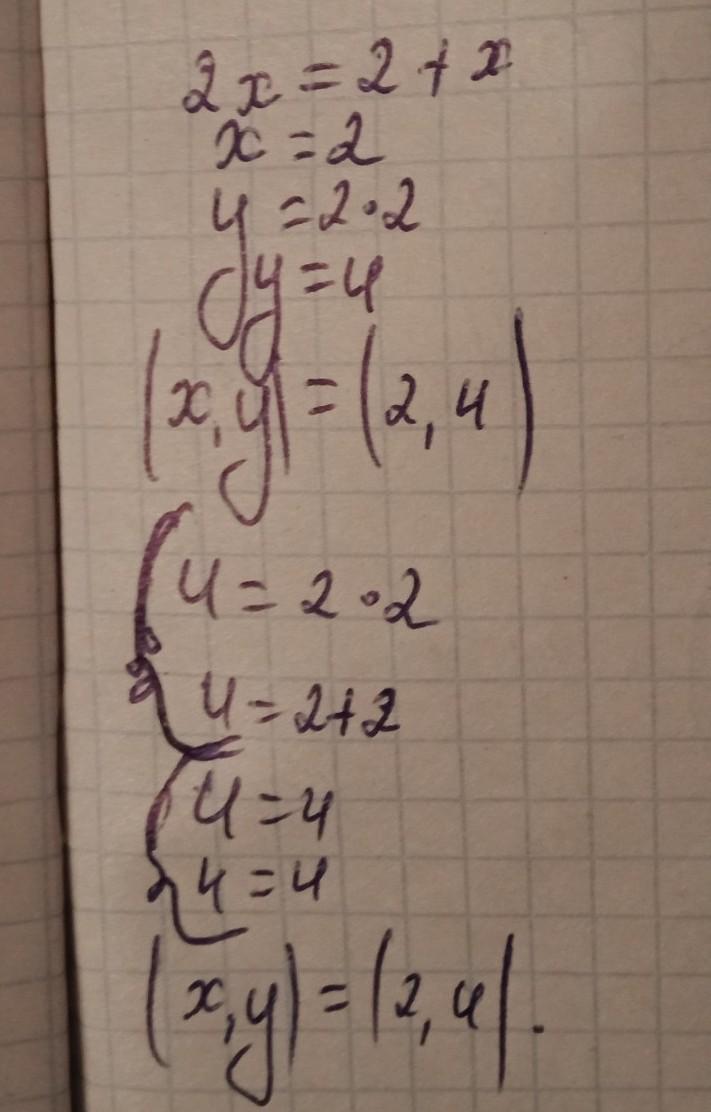 2x = 2 + x
x = 2
y = 2·2
y = 4
(x, y) = (2, 4)
{4 = 2·2
4 = 2+2
{4 = 4
4 = 4
(x, y) = (2, 4).